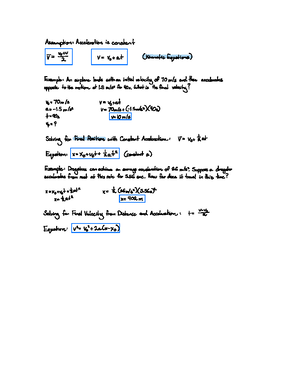 Assumption: Acceleration is constant
v̄ = v₀+v/2   v = v₀ + at   (Kinematic Equations)
Example: An airplane lands with an initial velocity of 70 m/s and then accelerates
opposite to the motion at 1.5 m/s² for 40s. What is the final velocity?
v₀ = 70 m/s   v = v₀ + at
a = -1.5 m/s²   v = 70 m/s + (-1.5 m/s²)(40s)
t = 40s   v = 10 m/s
v = ?
Solving for Final Position with Constant Acceleration: v̄ = v₀ + ½at
Equation: x = x₀ + v₀t + ½at² (constant a)
Example: Dragsters can achieve an average acceleration of 26 m/s². Suppose a dragster
accelerates from rest at this rate for 5.56 sec. How far does it travel in this time?
x = x₀ + v₀t + ½at²   x = ½(26 m/s²)(5.56)²
x = ½at²   x = 402 m
Solving for Final Velocity from Distance and Acceleration: t = v-v₀/a
Equation: v² = v₀² + 2a(x-x₀)